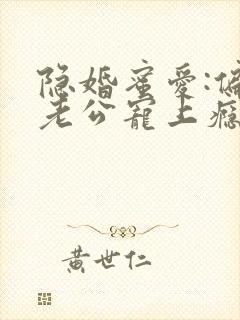 隐婚蜜爱:偏
老公宠上瘾
黄世仁